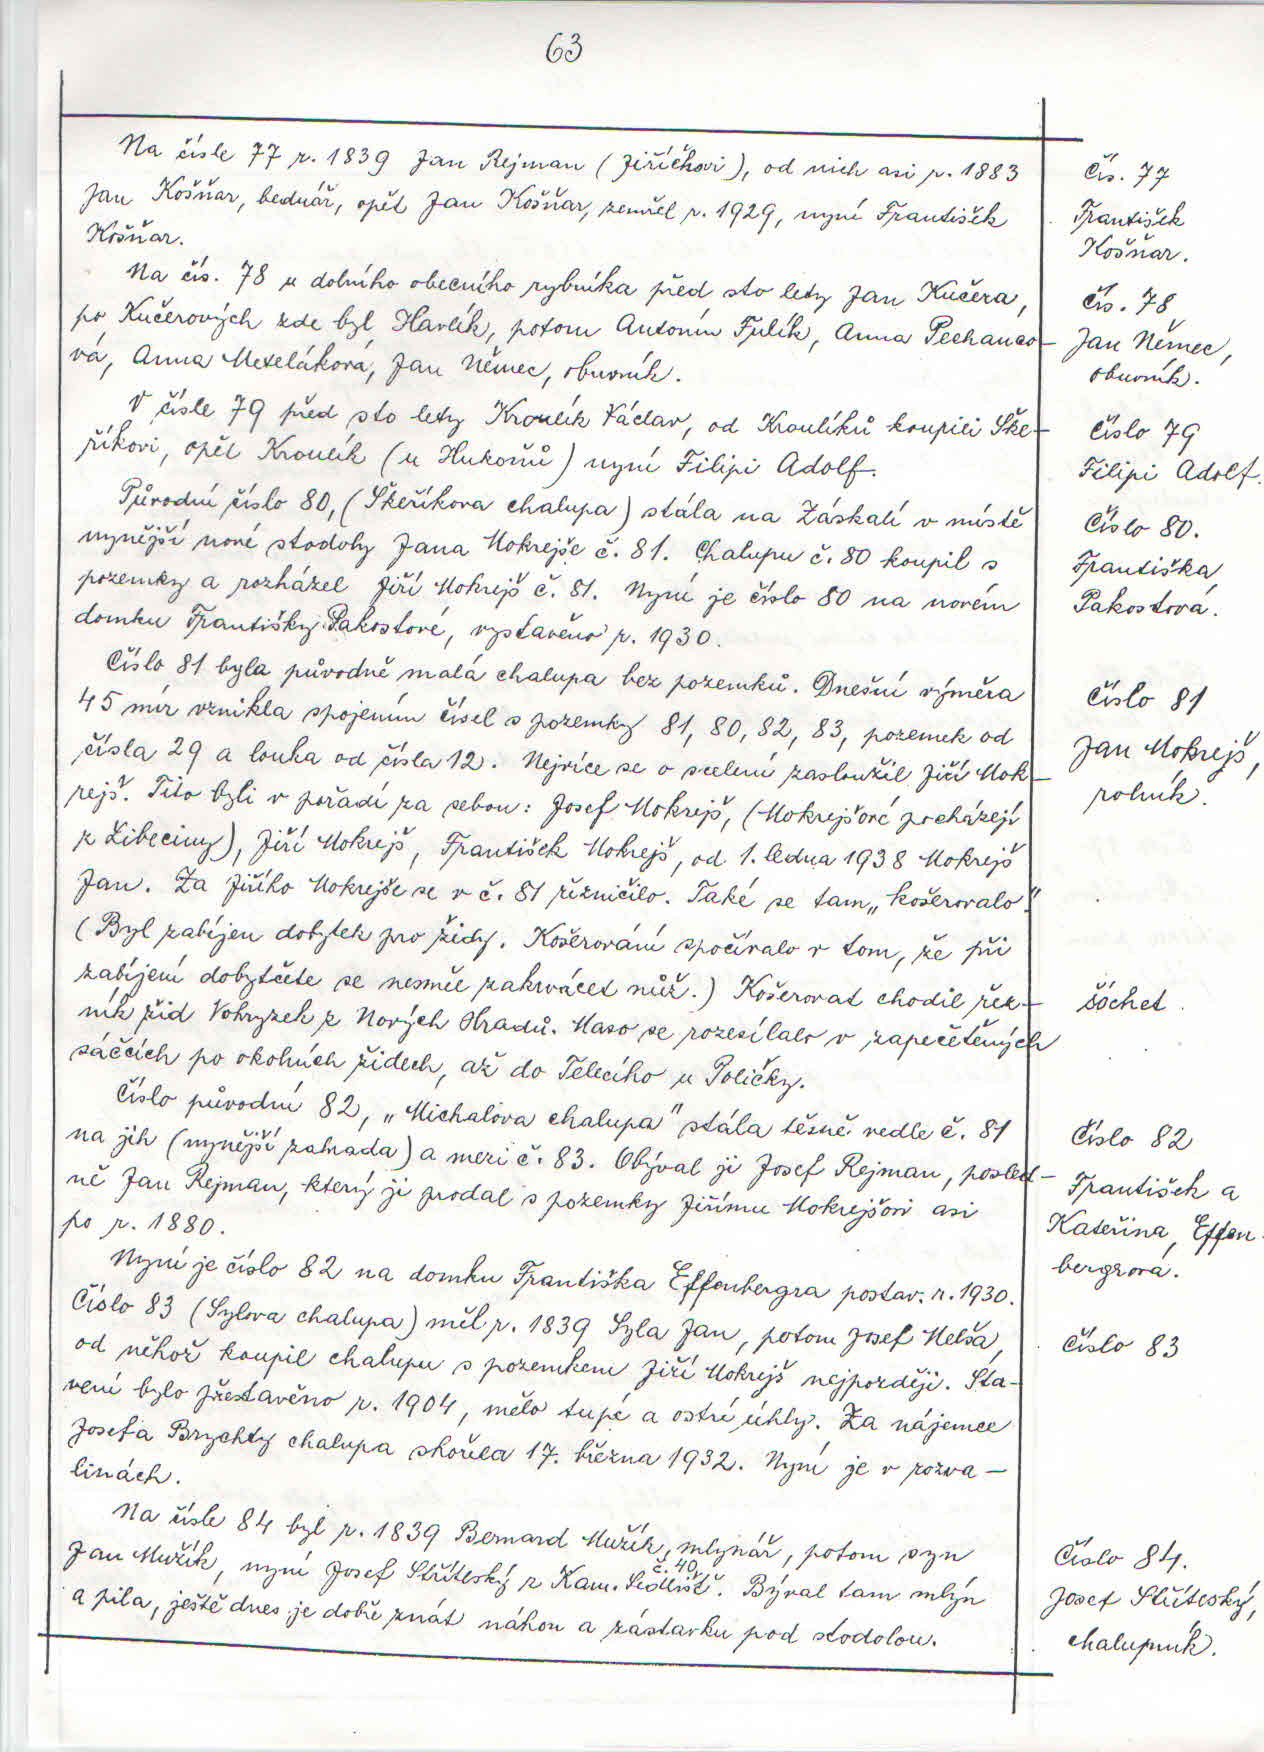 63
Na čísle 77 r. 1839 Jan Rejman (Jiříčkovi), od nich asi r. 1883
Jan Košňar, bednář, opět Jan Košňar, zemřel r. 1929, nyní František
Košňar.
Čís. 77
František
Košňar.
Na čís. 78 u dolního obecního rybníka před sto lety Jan Kučera,
po Kučerových zde byl Havlík, potom Antonín Fulík, Anna Pechanco-
vá, Anna Meteláková, Jan Němec, obuvník.
čís. 78
Jan Němec,
obuvník.
V čísle 79 před sto lety Kroulík Václav, od Kroulíků koupili Ške-
říkovi, opět Kroulík (u Hukoňů) nyní Filipi Adolf.
číslo 79
Filipi Adolf.
Původní číslo 80, (Škeříkova chalupa) stála na Záskalí v místě
nynější nové stodoly Jana Mokrejše č. 81. Chalupu č. 80 koupil s
pozemky a rozházel Jiří Mokrejš č. 81. Nyní je číslo 80 na novém
domku Františky Pakostové, vystavěno r. 1930.
Číslo 80.
Františka
Pakostová.
Číslo 81 byla původně malá chalupa bez pozemků. Dnešní výměra
45 mír vznikla spojením čísel s pozemky 81, 80, 82, 83, pozemek od
čísla 29 a louka od čísla 12. Nejvíce se o scelení zasloužil Jiří Mok-
rejš. Tito byli v pořadí za sebou: Josef Mokrejš, (Mokrejšové pocházejí
z Libeciny), Jiří Mokrejš, František Mokrejš, od 1. ledna 1938 Mokrejš
Jan. Za Jiřího Mokrejše se v č. 81 řezničilo. Také se tam „košerovalo."
(Byl zabíjen dobytek pro židy. Košerování spočívalo v tom, že při
zabíjení dobytčete se nesměl zakrvácet nůž.) Košerovat chodil řez-
ník žid Vohryzek z Nových Hradů. Maso se rozesílalo v zapečetěných
sáčcích po okolních židech, až do Telecího u Poličky.
číslo 81
Jan Mokrejš,
rolník.
šóchet
Číslo původní 82, „Michalova chalupa" stála těsně vedle č. 81
na jih (nynější zahrada) a mezi č. 83. Obýval ji Josef Rejman, posled-
ně Jan Rejman, který ji prodal s pozemky Jiřímu Mokrejšovi asi
po r. 1880.
Nyní je číslo 82 na domku Františka Effenbergra postav. r. 1930.
Číslo 82
František a
Kateřina Effen-
bergrova.
Číslo 83 (Sylova chalupa) měl r. 1839 Syla Jan, potom Josef Melša,
od něhož koupil chalupu s pozemkem Jiří Mokrejš nejpozději. Sta-
vení bylo přestavěno r. 1904, mělo tupé a ostré úhly. Za nájemce
Josefa Brychty chalupa shořela 17. března 1932. Nyní je v rozva-
linách.
číslo 83
Na čísle 84 byl r. 1839 Bernard Mužík, mlynář, potom syn
Jan Mužík, nyní Josef Stříteský z Kam. Sedlišť č. 40. Býval tam mlýn
a pila, ještě dnes je dobře znát náhon a zástavku pod stodolou.
Číslo 84.
Josef Stříteský,
chalupník.